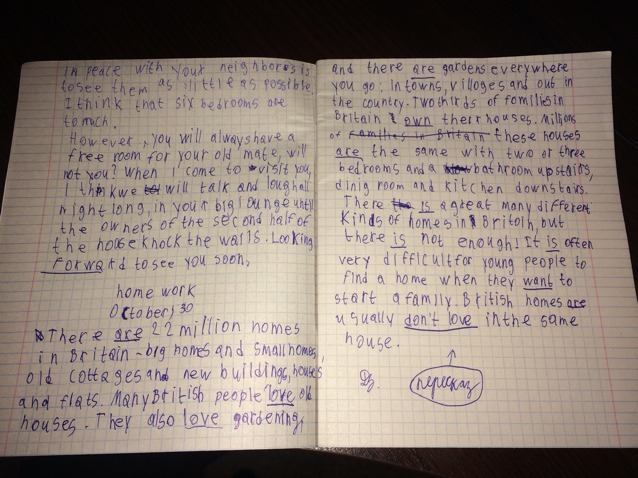 in peace with your neighbores is
to see them as little as possible.
I think that six bedrooms are
to much.
However, you will always have a
free room for your old mate, will
not you? When I come to visit you,
I think we will talk and laugh all
night long, in your big lounge until
the owners of the second half of
the house knock the walls. Looking
forward to see you soon,
home work
October, 30
There are 22 million homes
in Britain - big homes and small homes,
old cottages and new buildings, houses
and flats. Many British people love old
houses. They also love gardening,
and there are gardens everywhere
you go: in towns, villoges and out in
the country. Two thirds of families in
Britain own their houses. Millions
of families in Britain these houses
are the same with two or three
bedrooms and a bathroom upstairs,
dinig room and kitchen downstairs.
There is a great many different
kinds of homes in Britain, but
there is not enough! It is often
very difficult for young people to
find a home when they want to
start a family. British homes are
usually don't love in the same
house.
Дз. пересказ